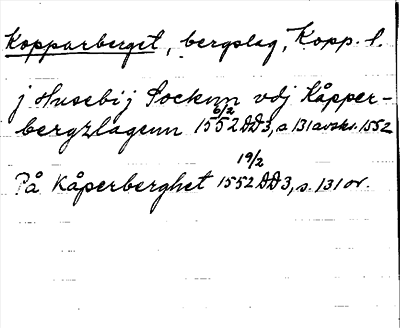 Kopparberget, bergslag, Kopp. l.
j Husebij Socknn vdj Kåpper-
bergzlagenn 6/2 1552 DD3, s 131 avskr. 1552
På Kåperberghet 19/2 1552 DD3, s. 131 or.